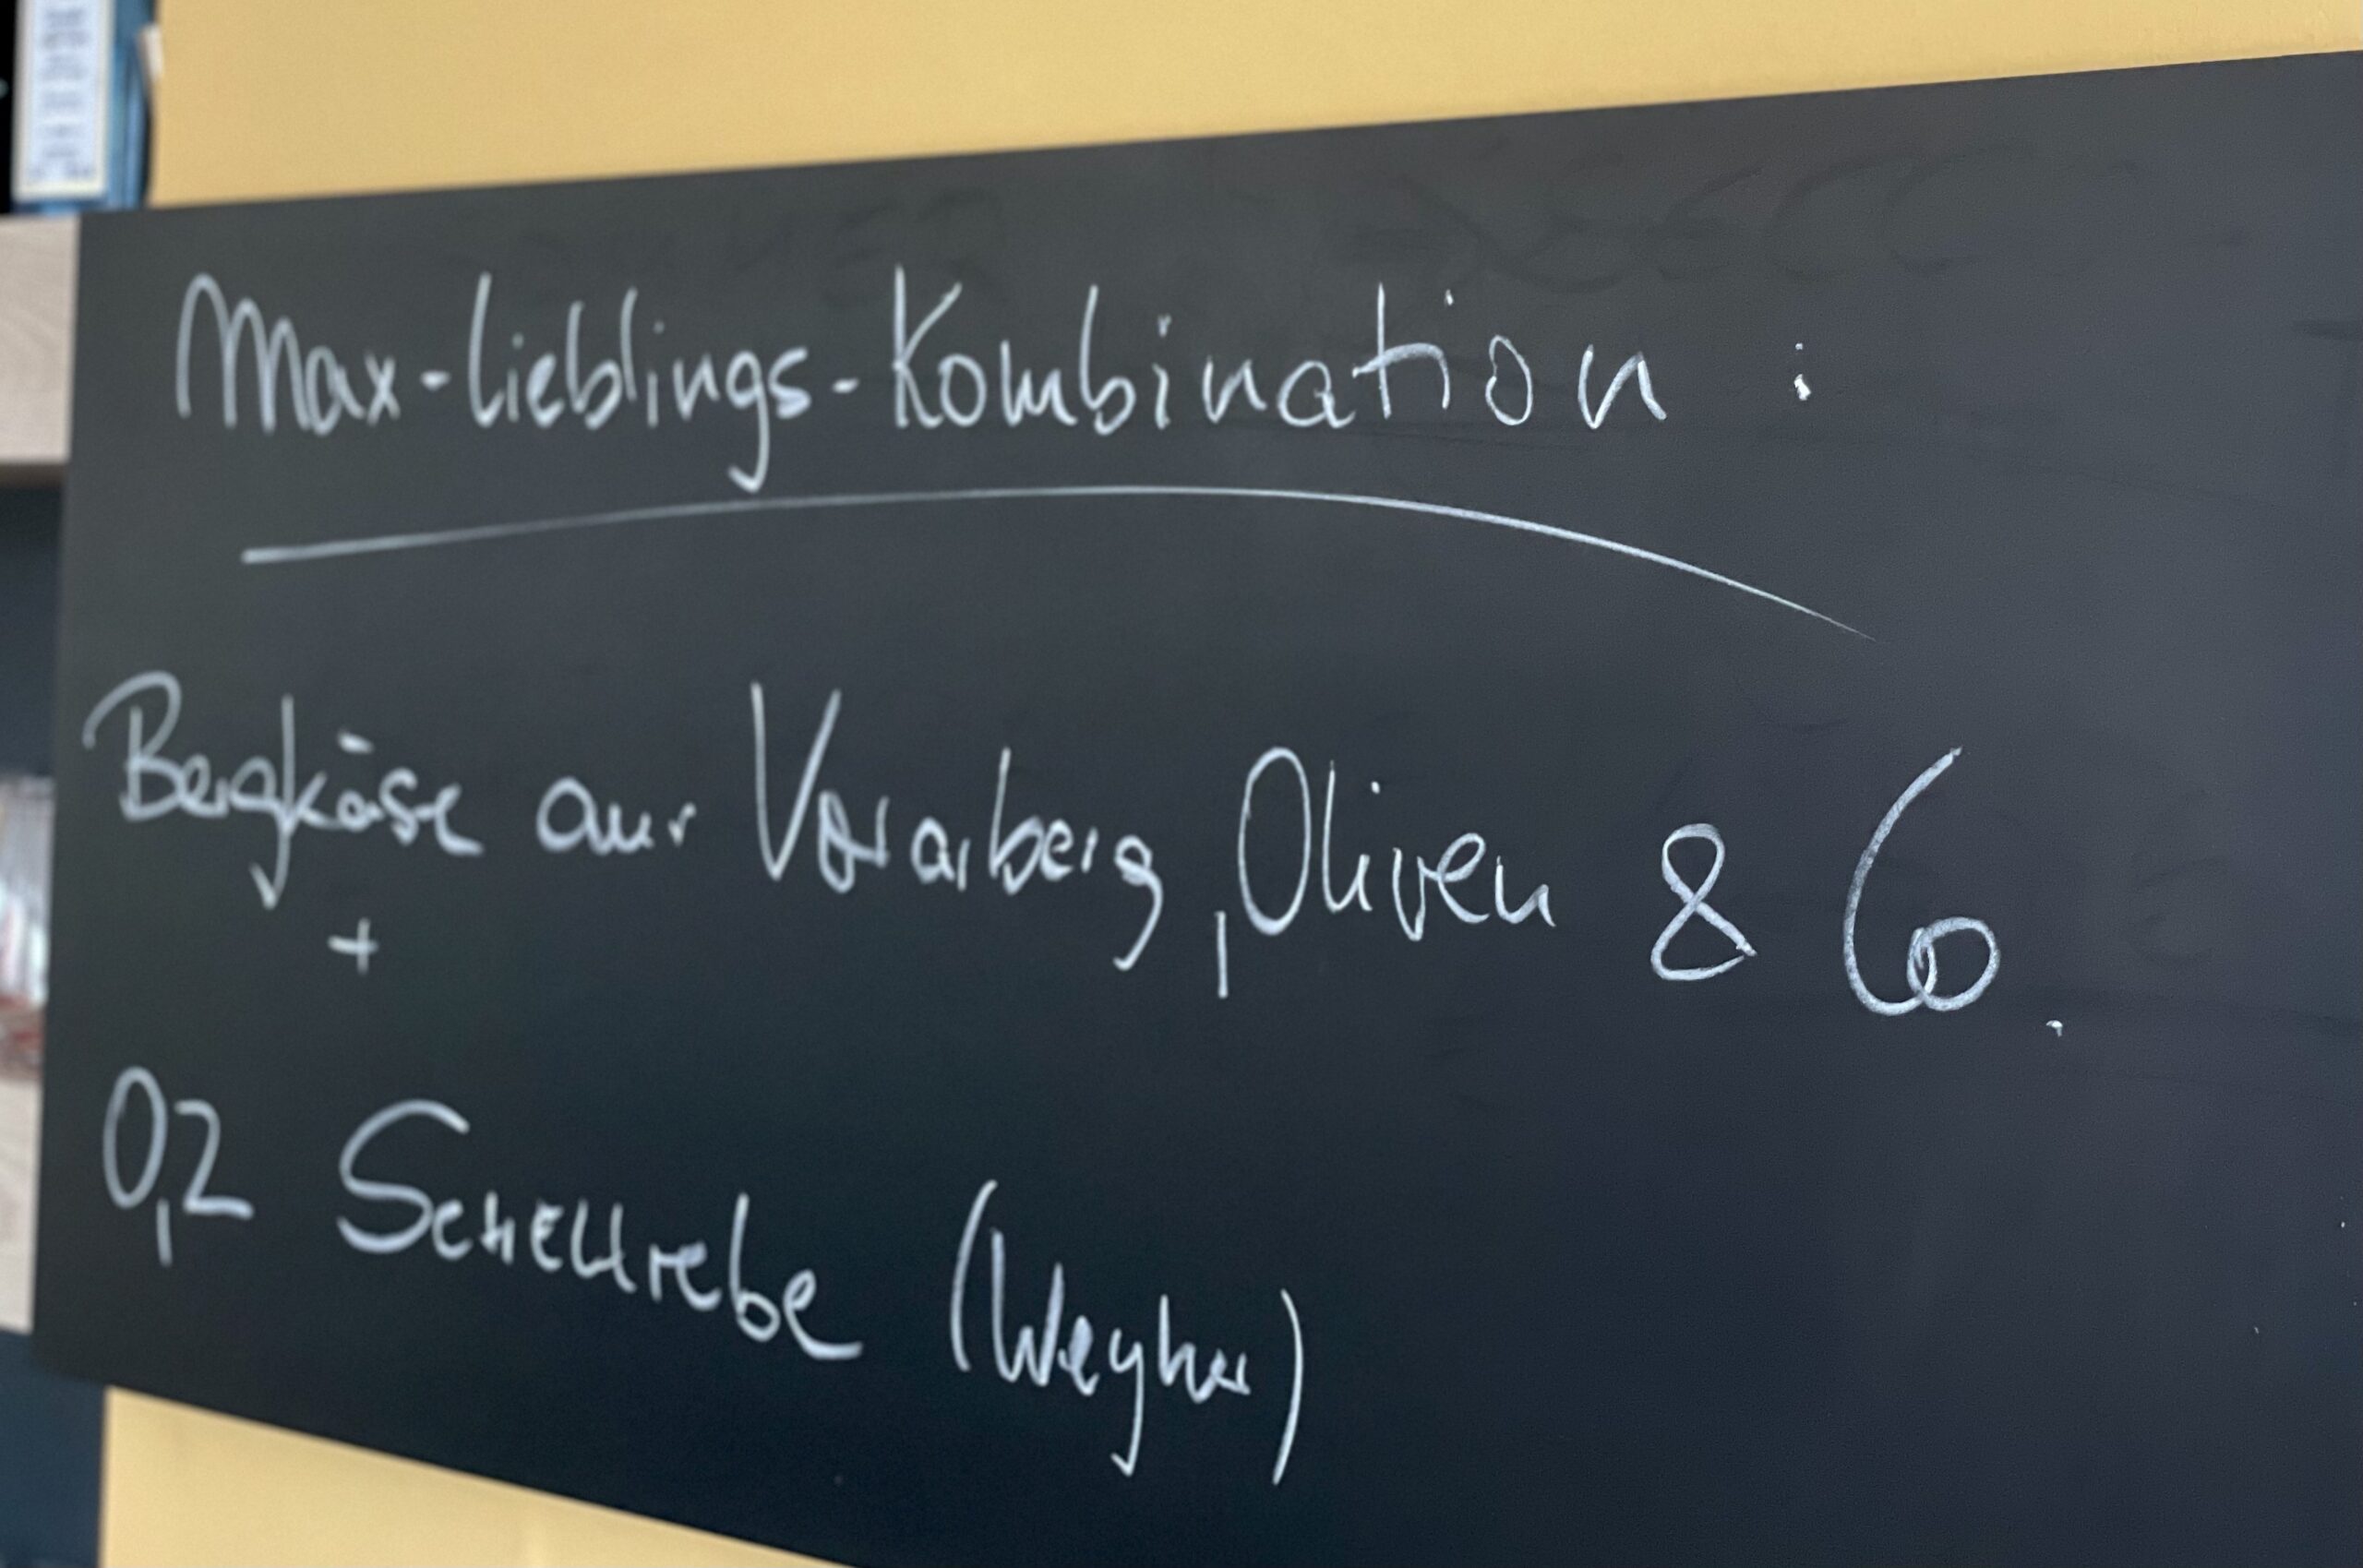 Max-Lieblings-Kombination :
Bergkäse aus Vorarberg, Oliven & Co.
+
0,2 SCHEUrebe (Weyher)